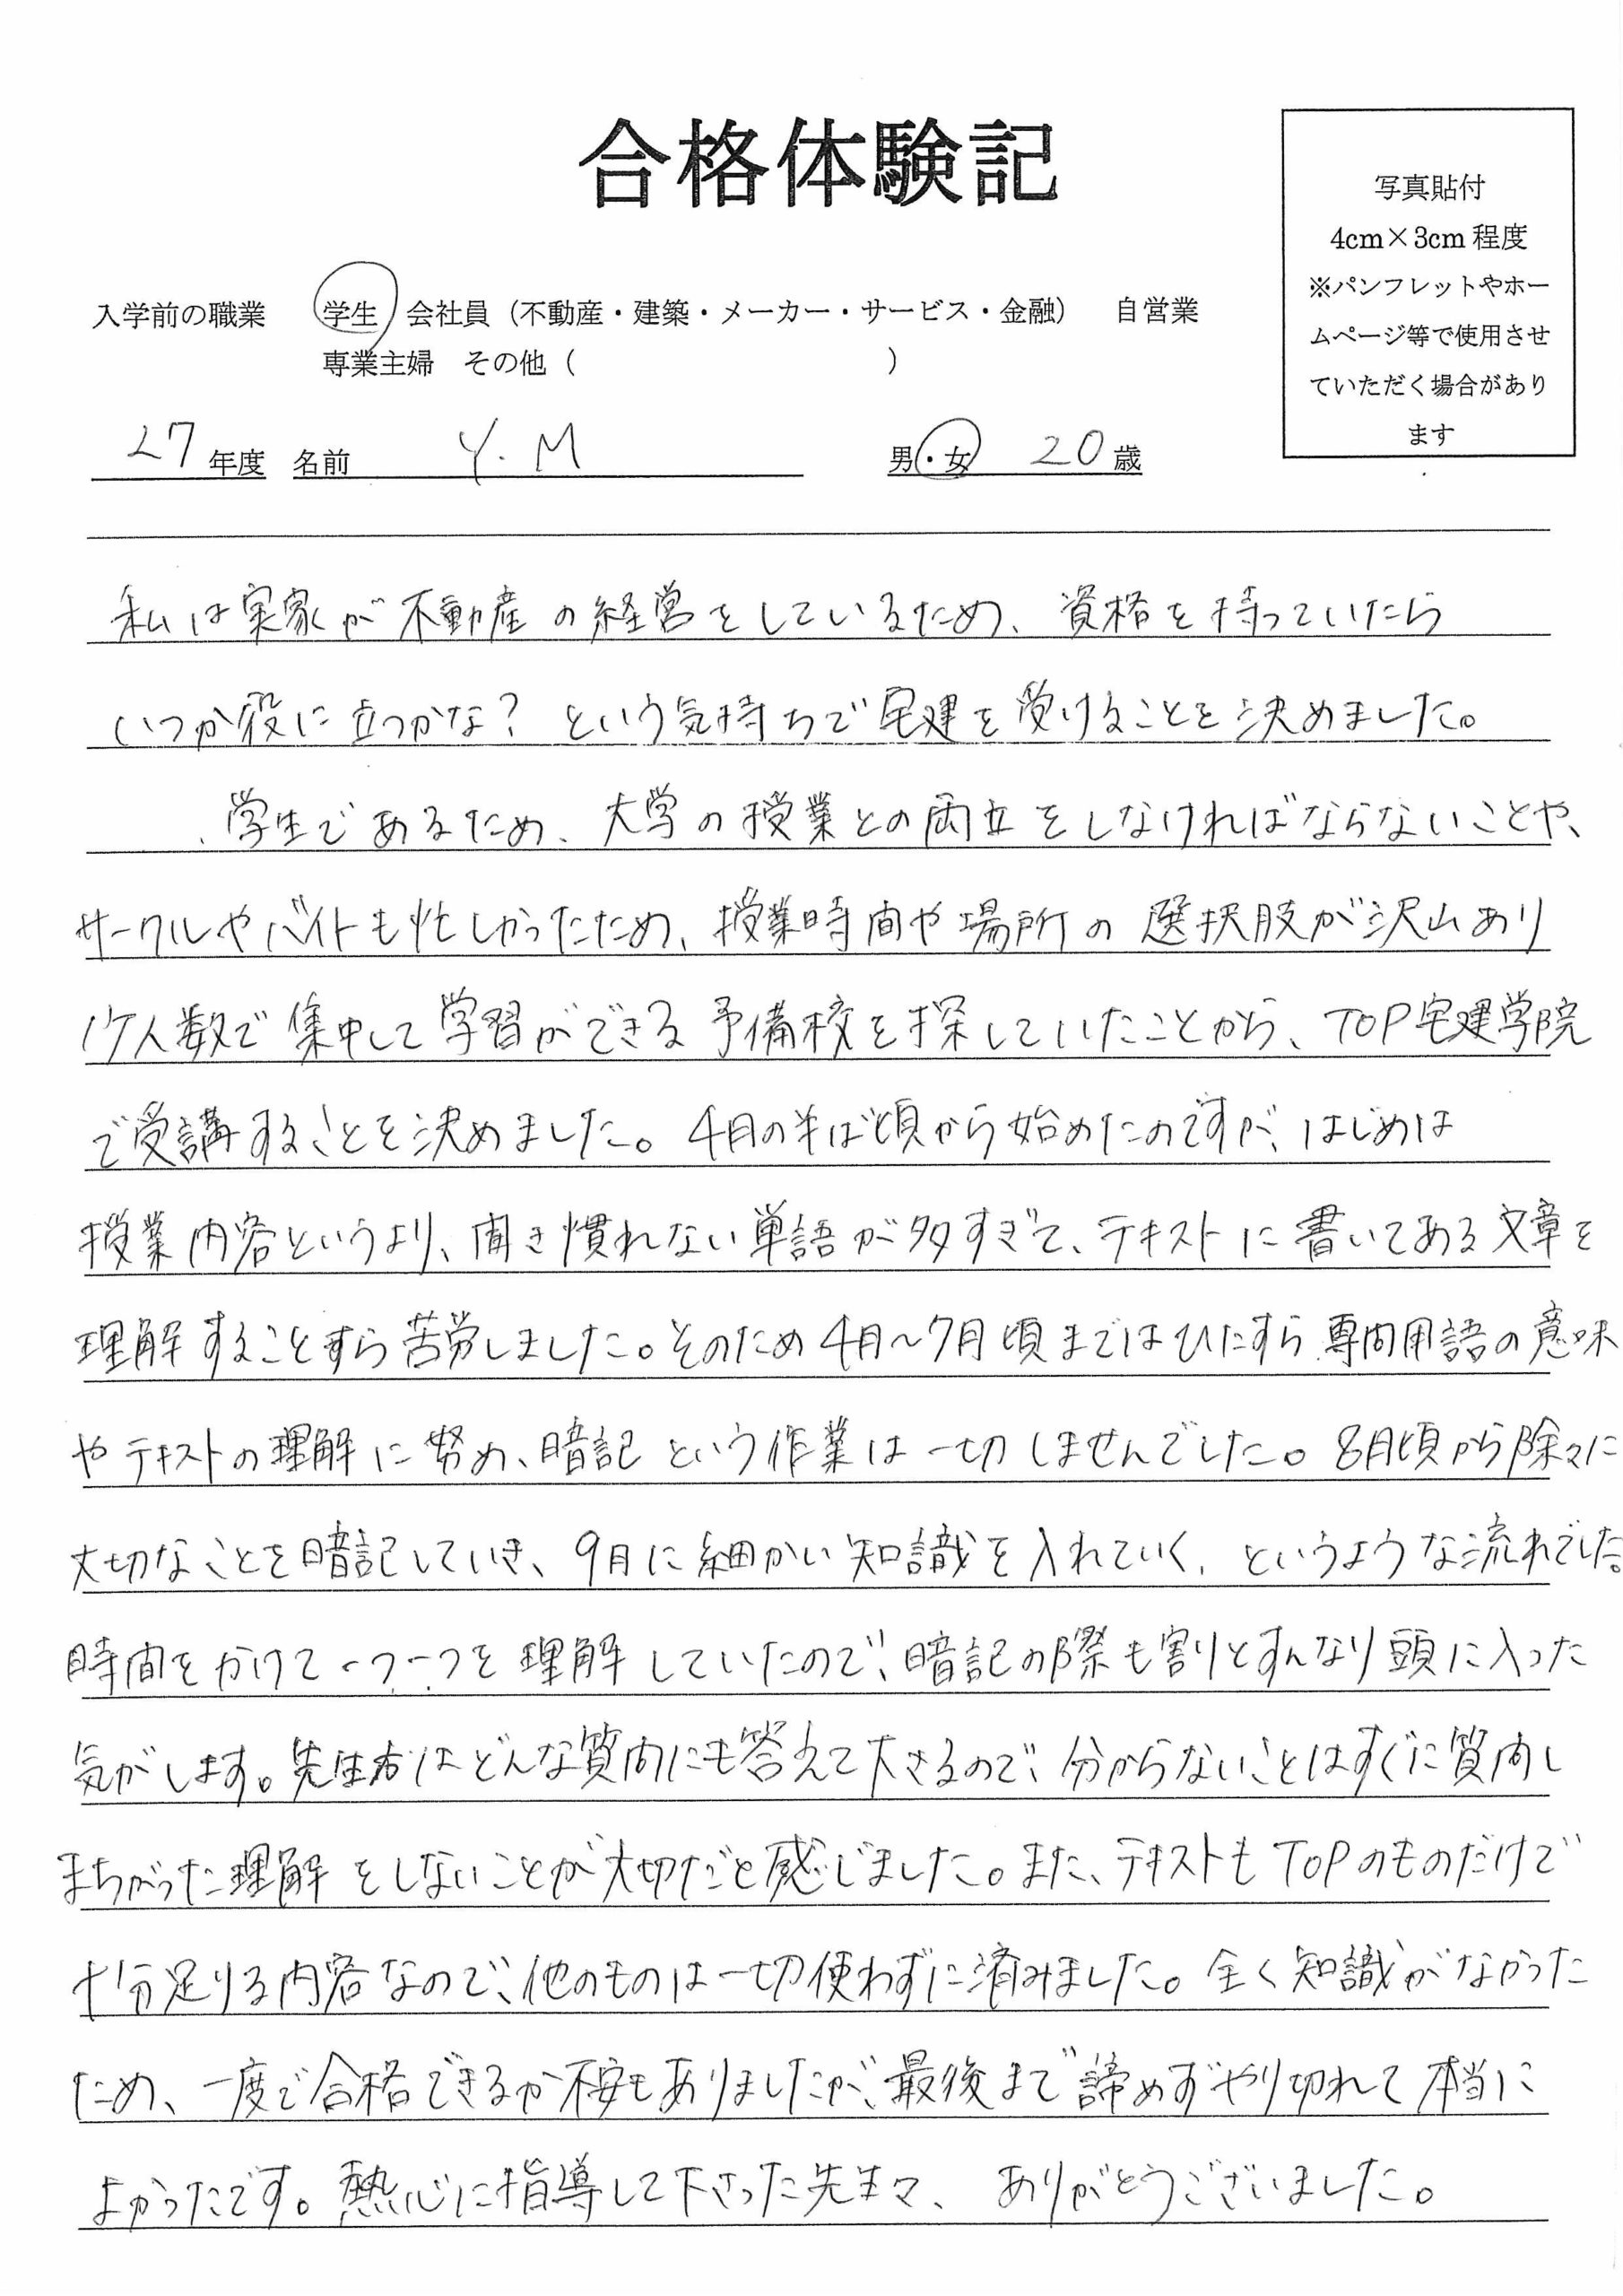 合格体験記
写真貼付
4cm×3cm 程度
※パンフレットやホー
ムページ等で使用させ
ていただく場合があり
ます
入学前の職業 学生 会社員（不動産・建築・メーカー・サービス・金融） 自営業
専業主婦 その他（ ）
27年度 名前 Y.M 男・女 20歳
私は実家が不動産の経営をしているため、資格を持っていたら
いつか役に立つかな？という気持ちで宅建を受けることを決めました。
学生であるため、大学の授業との両立をしなければならないことや、
サークルやバイトも忙しかったため、授業時間や場所の選択肢が沢山あり
少人数で集中して学習ができる予備校を探していたことから、TOP宅建学院
で受講することを決めました。4月の半ば頃から始めたのですが、はじめは
授業内容というより、聞き慣れない単語が多すぎて、テキストに書いてある文章を
理解することすら苦労しました。そのため4月～7月頃まではひたすら専門用語の意味
やテキストの理解に努め、暗記という作業は一切しませんでした。8月頃から除々に
大切なことを暗記していき、9月に細かい知識を入れていく、というような流れでした。
時間をかけて一つ一つを理解していたので、暗記の際も割りとすんなり頭に入った
気がします。先生方はどんな質問にも答えて下さるので、分からないことはすぐに質問し
まちがった理解をしないことが大切だと感じました。また、テキストもTOPのものだけで
十分足りる内容なので、他のものは一切使わずに済みました。全く知識がなかった
ため、一度で合格できるか不安もありましたが、最後まで諦めずやり切れて本当に
よかったです。熱心に指導して下さった先生々、ありがとうございました。